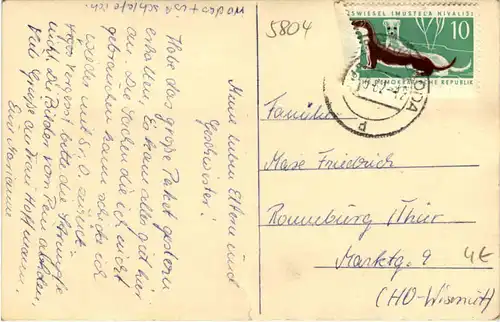 5804
ZSWIESEL (MUSTELA NIVALIS)
10
DEMOKRATISCHE REPUBLIK
Meine lieben Eltern und
Geschwister!
Habe das große Paket gestern
erhalten. Es kam alles gut hier
an. Die Sachen die ich nicht
gebrauchen kann schicke ich
wieder mit zurück.
Vergesst bitte die Strümpfe
nicht. Die Bilder von abholen.
Viele Grüße an Frau Hoffmann.
Eure Marianne
Familie
Max Friedrich
Ronneburg /Thür
Marktg. 9
(HO-Wismut)
4€